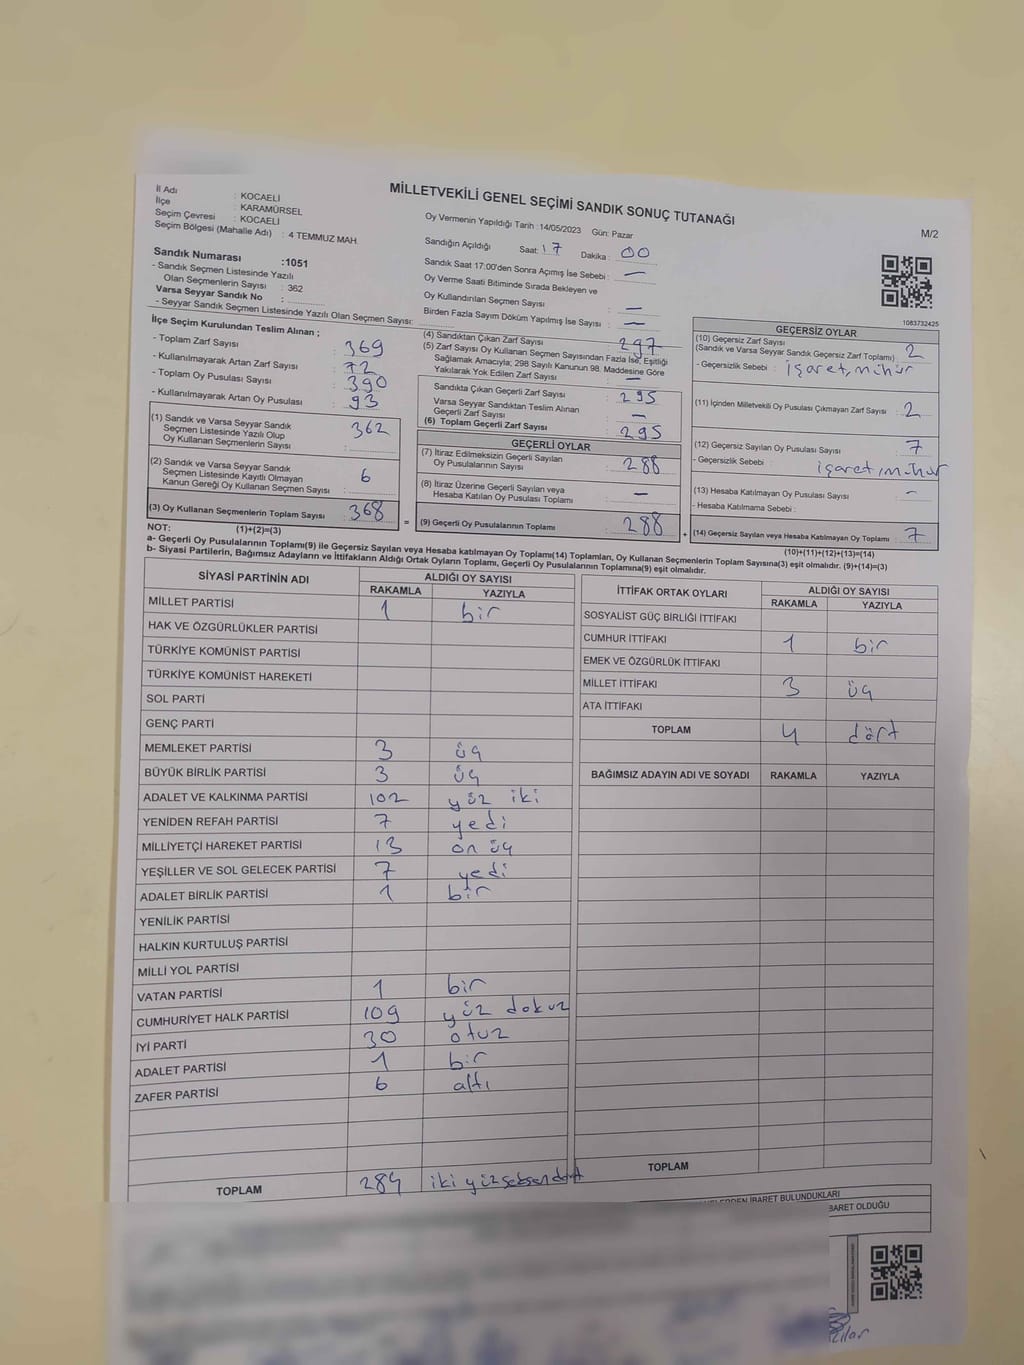 MİLLETVEKİLİ GENEL SEÇİMİ SANDIK SONUÇ TUTANAĞI
M/2
İl Adı : KOCAELİ
İlçe : KARAMÜRSEL
Seçim Çevresi : KOCAELİ
Seçim Bölgesi (Mahalle Adı) : 4 TEMMUZ MAH.
Sandık Numarası :1051
- Sandık Seçmen Listesinde Yazılı
Olan Seçmenlerin Sayısı : 362
Varsa Seyyar Sandık No :
- Seyyar Sandık Seçmen Listesinde Yazılı Olan Seçmen Sayısı:
Oy Vermenin Yapıldığı Tarih :14/05/2023 Gün: Pazar
Sandığın Açıldığı Saat: 17 Dakika : 00
Sandık Saat 17:00'den Sonra Açımış İse Sebebi : —
Oy Verme Saati Bitiminde Sırada Bekleyen ve
Oy Kullandırılan Seçmen Sayısı : —
Birden Fazla Sayım Döküm Yapılmış İse Sayısı : —
1083732425
İlçe Seçim Kurulundan Teslim Alınan ;
- Toplam Zarf Sayısı : 369
- Kullanılmayarak Artan Zarf Sayısı : 72
- Toplam Oy Pusulası Sayısı : 390
- Kullanılmayarak Artan Oy Pusulası : 93
(1) Sandık ve Varsa Seyyar Sandık
Seçmen Listesinde Yazılı Olup
Oy Kullanan Seçmenlerin Sayısı : 362
(2) Sandık ve Varsa Seyyar Sandık
Seçmen Listesinde Kayıtlı Olmayan
Kanun Gereği Oy Kullanan Seçmen Sayısı : 6
(3) Oy Kullanan Seçmenlerin Toplam Sayısı : 368
(1)+(2)=(3)
(4) Sandıktan Çıkan Zarf Sayısı : 297
(5) Zarf Sayısı Oy Kullanan Seçmen Sayısından Fazla İse, Eşitliği
Sağlamak Amacıyla; 298 Sayılı Kanunun 98. Maddesine Göre
Yakılarak Yok Edilen Zarf Sayısı : —
Sandıkta Çıkan Geçerli Zarf Sayısı : 295
Varsa Seyyar Sandıktan Teslim Alınan
Geçerli Zarf Sayısı : —
(6) Toplam Geçerli Zarf Sayısı : 295
GEÇERLİ OYLAR
(7) İtiraz Edilmeksizin Geçerli Sayılan
Oy Pusulalarının Sayısı : 288
(8) İtiraz Üzerine Geçerli Sayılan veya
Hesaba Katılan Oy Pusulası Toplamı : —
= (9) Geçerli Oy Pusulalarının Toplamı : 288
GEÇERSİZ OYLAR
(10) Geçersiz Zarf Sayısı
(Sandık ve Varsa Seyyar Sandık Geçersiz Zarf Toplamı) : 2
- Geçersizlik Sebebi : işaret, mühür
(11) İçinden Milletvekili Oy Pusulası Çıkmayan Zarf Sayısı : 2
(12) Geçersiz Sayılan Oy Pusulası Sayısı : 7
- Geçersizlik Sebebi : işaret, mühür
(13) Hesaba Katılmayan Oy Pusulası Sayısı : -
- Hesaba Katılmama Sebebi :
+ (14) Geçersiz Sayılan veya Hesaba Katılmayan Oy Toplamı : 7
(10)+(11)+(12)+(13)=(14)
NOT:
a- Geçerli Oy Pusulalarının Toplamı(9) ile Geçersiz Sayılan veya Hesaba katılmayan Oy Toplamı(14) Toplamları, Oy Kullanan Seçmenlerin Toplam Sayısına(3) eşit olmalıdır. (9)+(14)=(3)
b- Siyasi Partilerin, Bağımsız Adayların ve İttifakların Aldığı Ortak Oyların Toplamı, Geçerli Oy Pusulalarının Toplamına(9) eşit olmalıdır.
SİYASİ PARTİNİN ADI ALDIĞI OY SAYISI
RAKAMLA YAZIYLA
MİLLET PARTİSİ 1 bir
HAK VE ÖZGÜRLÜKLER PARTİSİ
TÜRKİYE KOMÜNİST PARTİSİ
TÜRKİYE KOMÜNİST HAREKETİ
SOL PARTİ
GENÇ PARTİ
MEMLEKET PARTİSİ 3 üç
BÜYÜK BİRLİK PARTİSİ 3 üç
ADALET VE KALKINMA PARTİSİ 102 yüz iki
YENİDEN REFAH PARTİSİ 7 yedi
MİLLİYETÇİ HAREKET PARTİSİ 13 on üç
YEŞİLLER VE SOL GELECEK PARTİSİ 7 yedi
ADALET BİRLİK PARTİSİ 1 bir
YENİLİK PARTİSİ
HALKIN KURTULUŞ PARTİSİ
MİLLİ YOL PARTİSİ
VATAN PARTİSİ 1 bir
CUMHURİYET HALK PARTİSİ 109 yüz dokuz
İYİ PARTİ 30 otuz
ADALET PARTİSİ 1 bir
ZAFER PARTİSİ 6 altı
TOPLAM 284 iki yüz seksen dört
İTTİFAK ORTAK OYLARI ALDIĞI OY SAYISI
RAKAMLA YAZIYLA
SOSYALİST GÜÇ BİRLİĞİ İTTİFAKI
CUMHUR İTTİFAKI 1 bir
EMEK VE ÖZGÜRLÜK İTTİFAKI
MİLLET İTTİFAKI 3 üç
ATA İTTİFAKI
TOPLAM 4 dört
BAĞIMSIZ ADAYIN ADI VE SOYADI RAKAMLA YAZIYLA
TOPLAM
İBARET BULUNDUKLARI
BARET OLDUĞU